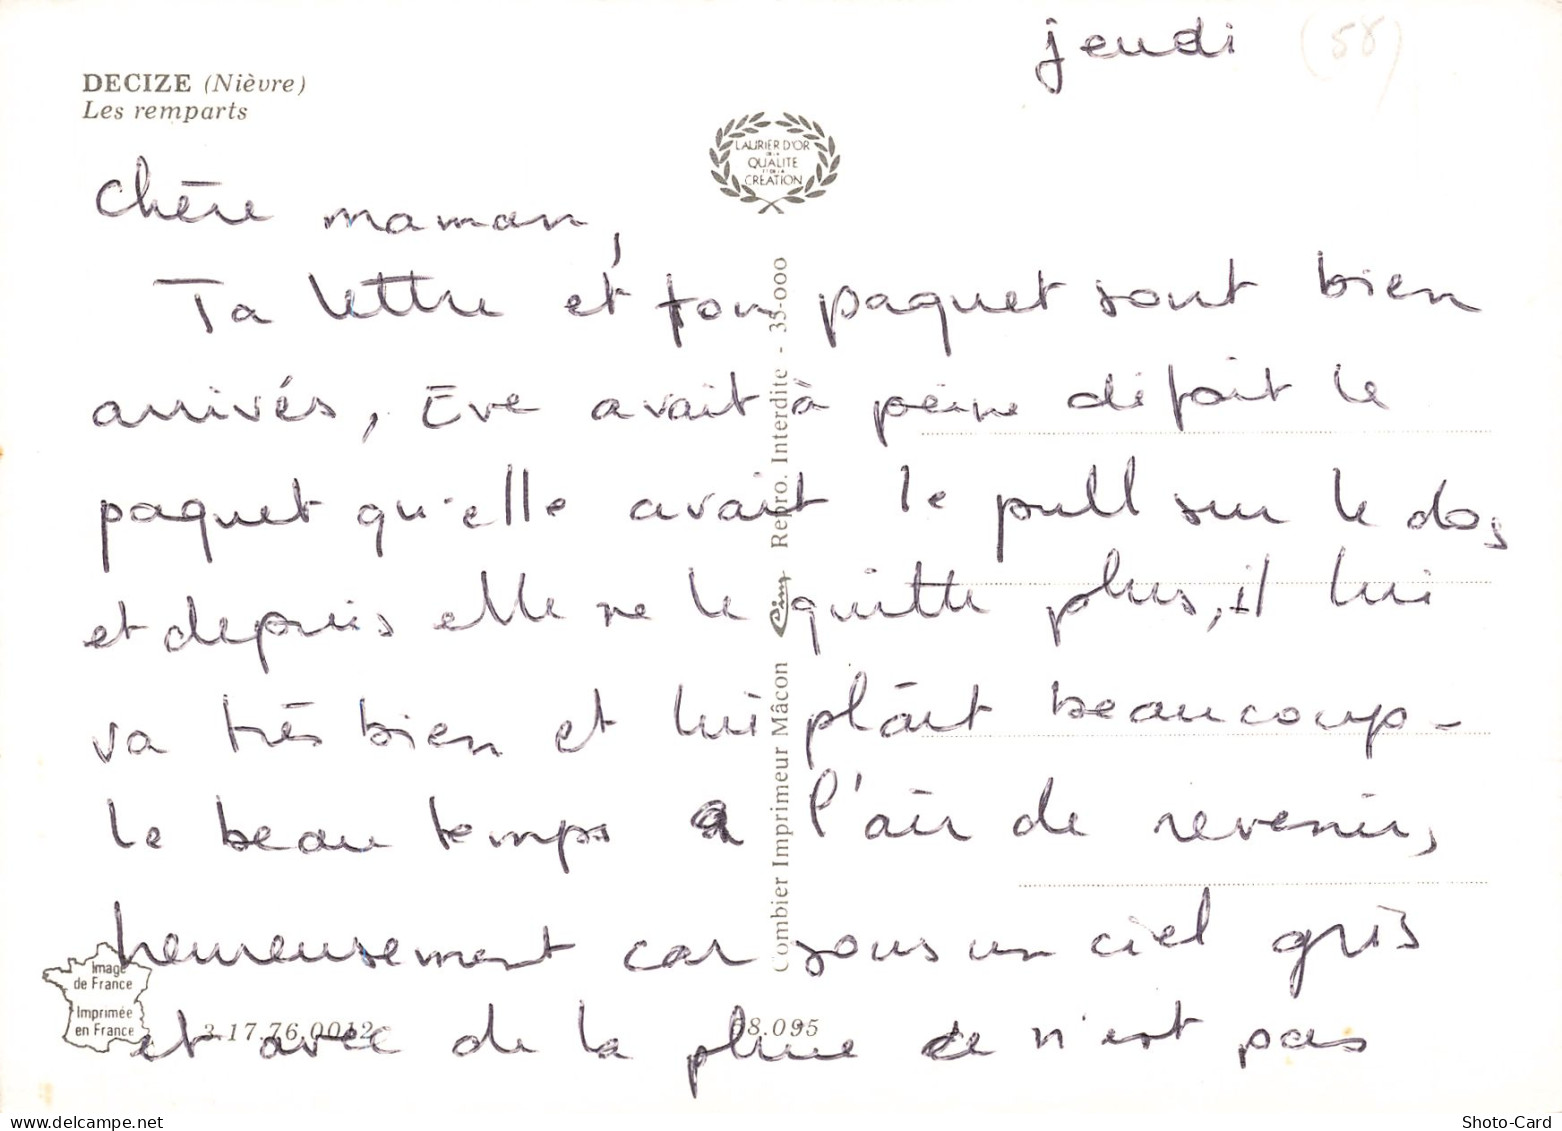 jeudi (58)
DECIZE (Nièvre)
Les remparts
LAURIER D'OR
DE LA
QUALITE
ET DE LA
CREATION
Chère maman,
Ta lettre et ton paquet sont bien
arrivés, Eve avait à peine défait le
paquet qu'elle avait le pull sur le dos,
et depuis elle ne le quitte plus, il lui
va très bien et lui plaît beaucoup -
le beau temps a l'air de revenir,
heureusement car sous un ciel gris
et avec de la pluie ce n'est pas
Combier Imprimeur Mâcon Cim Repro. Interdite - 35-000
Image
de France
Imprimée
en France
3.17.76.0012
58.095
Shoto-Card